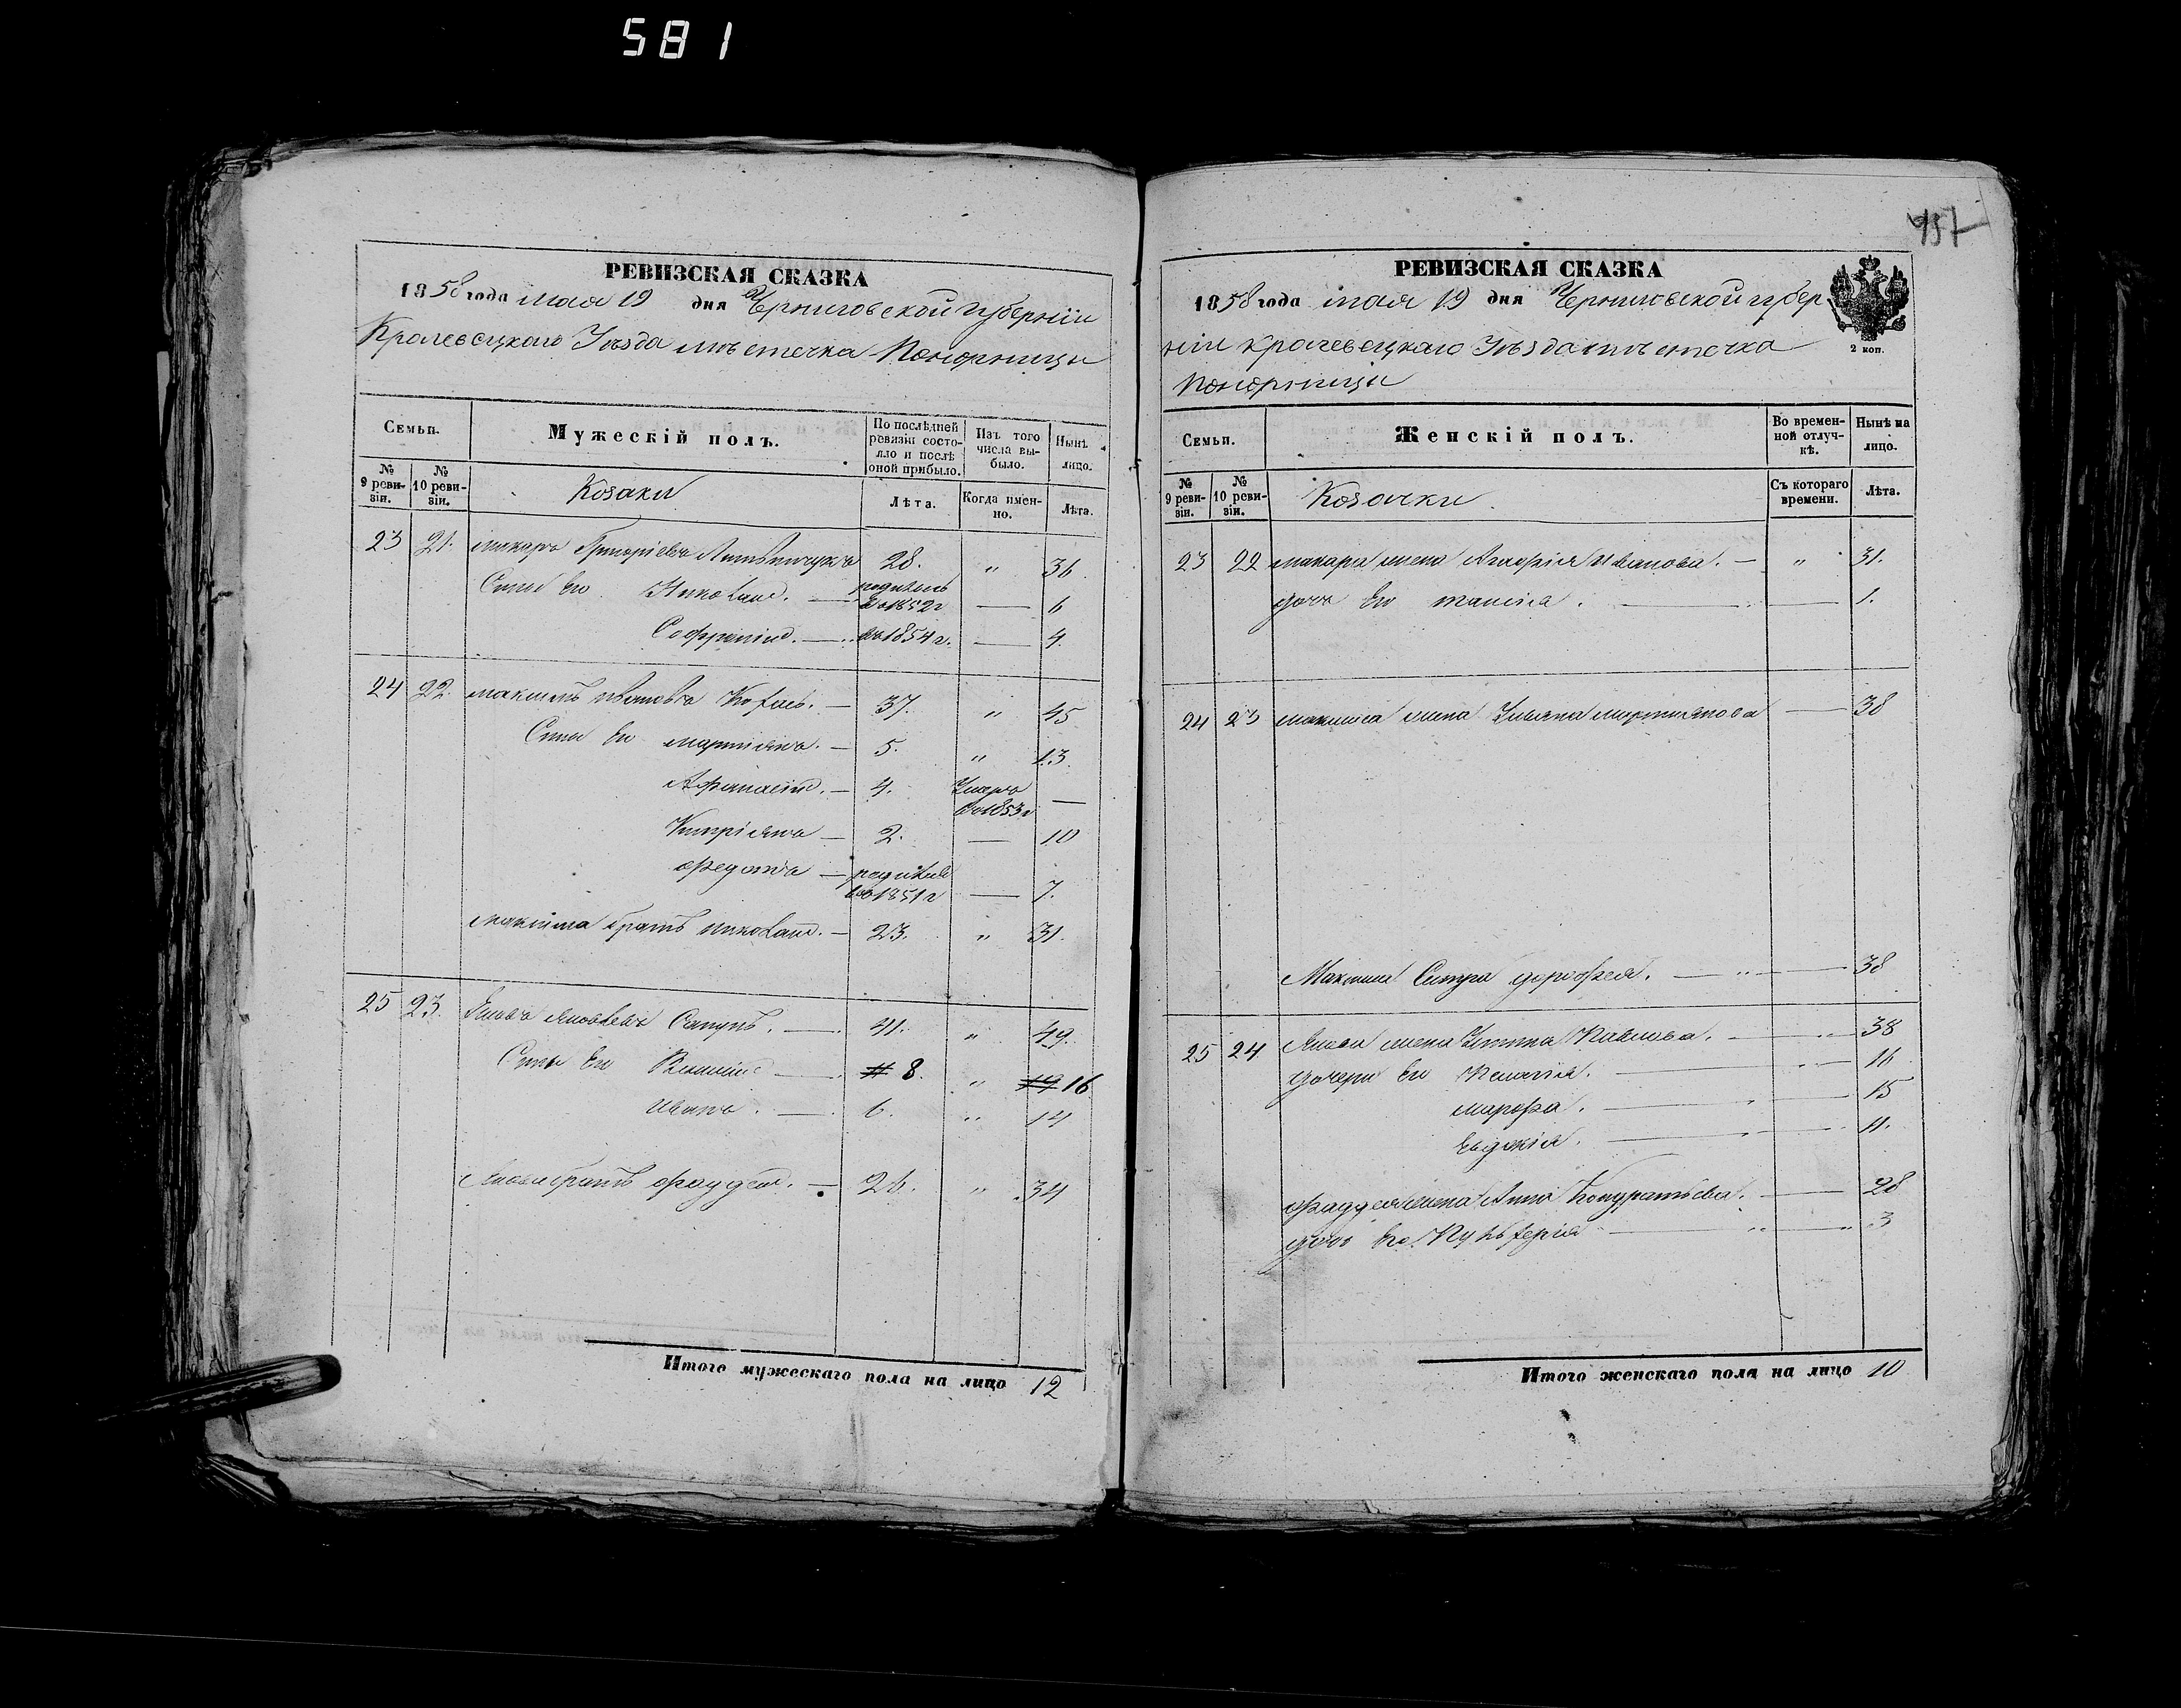 581
РЕВИЗСКАЯ СКАЗКА
1858 года мая 19 дня Черниговской губерніи
Кролевецкаго Уѣзда мѣстечка Понорницы
Семьи.
Мужескій полъ.
По послѣдней ревизіи состояло и послѣ оной прибыло.
Изъ того числа выбыло.
Нынѣ лицо.
№ 9 ревизіи.
№ 10 ревизіи.
Козаки
Лѣта.
Когда именно.
Лѣта.
23 21. Макаръ Григоріевъ 28. " 36
Сыны его Николай. — родился въ 1852 г — 6
Софроній. — въ 1854 г. — 4.
24 22. Максимъ Ивановъ 37. " 45
Сыны его Мартинъ. — 5. " 13.
Афанасій. — 4. Умеръ въ 1853 г —
Кипріянъ — 2. — 10
Федотъ — родился въ 1851 г — 7.
Максима братъ Николай. — 23. " 31.
25 23. Яковъ Яковлевъ Сапунъ. — 41. " 49.
Сыны его 8. " 16
Иванъ. — 6. " 14
Якова братъ Фаддей. — 26. " 34
Итого мужескаго пола на лицо 12
957
РЕВИЗСКАЯ СКАЗКА
1858 года мая 19 дня Черниговской губер
ніи Кролевецкаго Уѣзда мѣстечка
Понорницы
2 коп.
Семьи.
Женскій полъ.
Во временной отлучкѣ.
Нынѣ на лицо.
№ 9 ревизіи.
№ 10 ревизіи.
Козачки.
Съ котораго времени.
Лѣта.
23 22 Макара жена Агафія Иванова. — " 31.
дочь его — 1.
24 23 Максима жена Ульяна Мартинова — 38
Максима Сестра Дорофея. — " — 38
25 24 Якова жена Устина Павлова. — " — 38
дочери его Пелагія. — " — 16
Марфа. — " — 15
Евдокія. — " — 11.
Фаддея жена Анна Кондратьева. — 28
дочь его Пульхерія — " — " 3
Итого женскаго пола на лицо 10